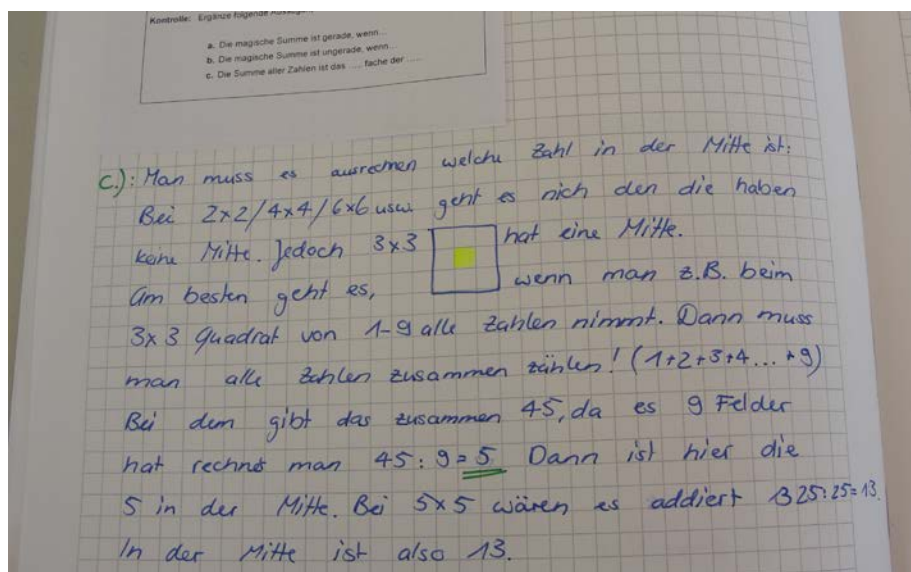 Kontrolle: Ergänze folgende Aussagen
a. Die magische Summe ist gerade, wenn...
b. Die magische Summe ist ungerade, wenn...
c. Die Summe aller Zahlen ist das ..... fache der ......
c.): Man muss es ausrechnen welche Zahl in der Mitte ist:
Bei 2x2/4x4/6x6 usw. geht es nich den die haben
keine Mitte. Jedoch 3x3 hat eine Mitte.
Am besten geht es, wenn man z.B. beim
3x3 Quadrat von 1-9 alle Zahlen nimmt. Dann muss
man alle Zahlen zusammen zählen! (1+2+3+4...+9)
Bei dem gibt das zusammen 45, da es 9 Felder
hat rechnet man 45:9=5. Dann ist hier die
5 in der Mitte. Bei 5x5 wären es addiert 325:25=13.
In der Mitte ist also 13.